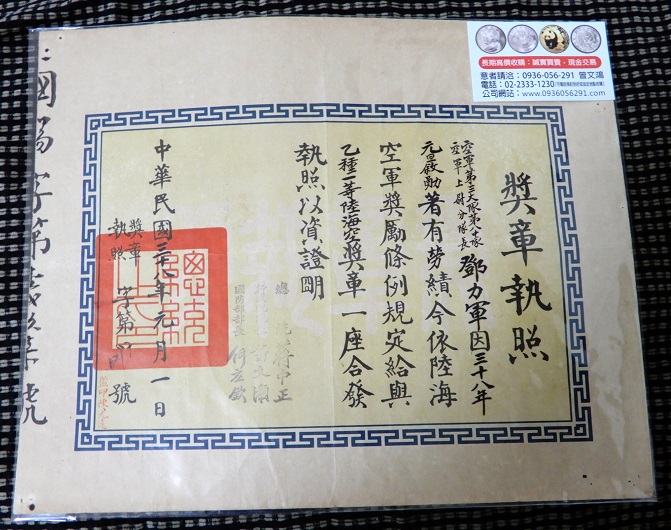 獎章執照
空軍第三大隊第八隊
空軍上尉分隊長
鄧力軍因三十八年
元旦敘勛著有勞績今依陸海
空軍獎勵條例規定給與
乙種一等陸海空獎章一座合發
執照以資證明
總統蔣中正
國防部部長何應欽
中華民國三十八年元月一日
獎章
執照
字第
號
國
字第
號
長期高價收購：誠實買賣，現金交易
意者請洽：0936-056-291 曾文鴻
電話：02-2333-1230
公司網站：www.0936056291.com